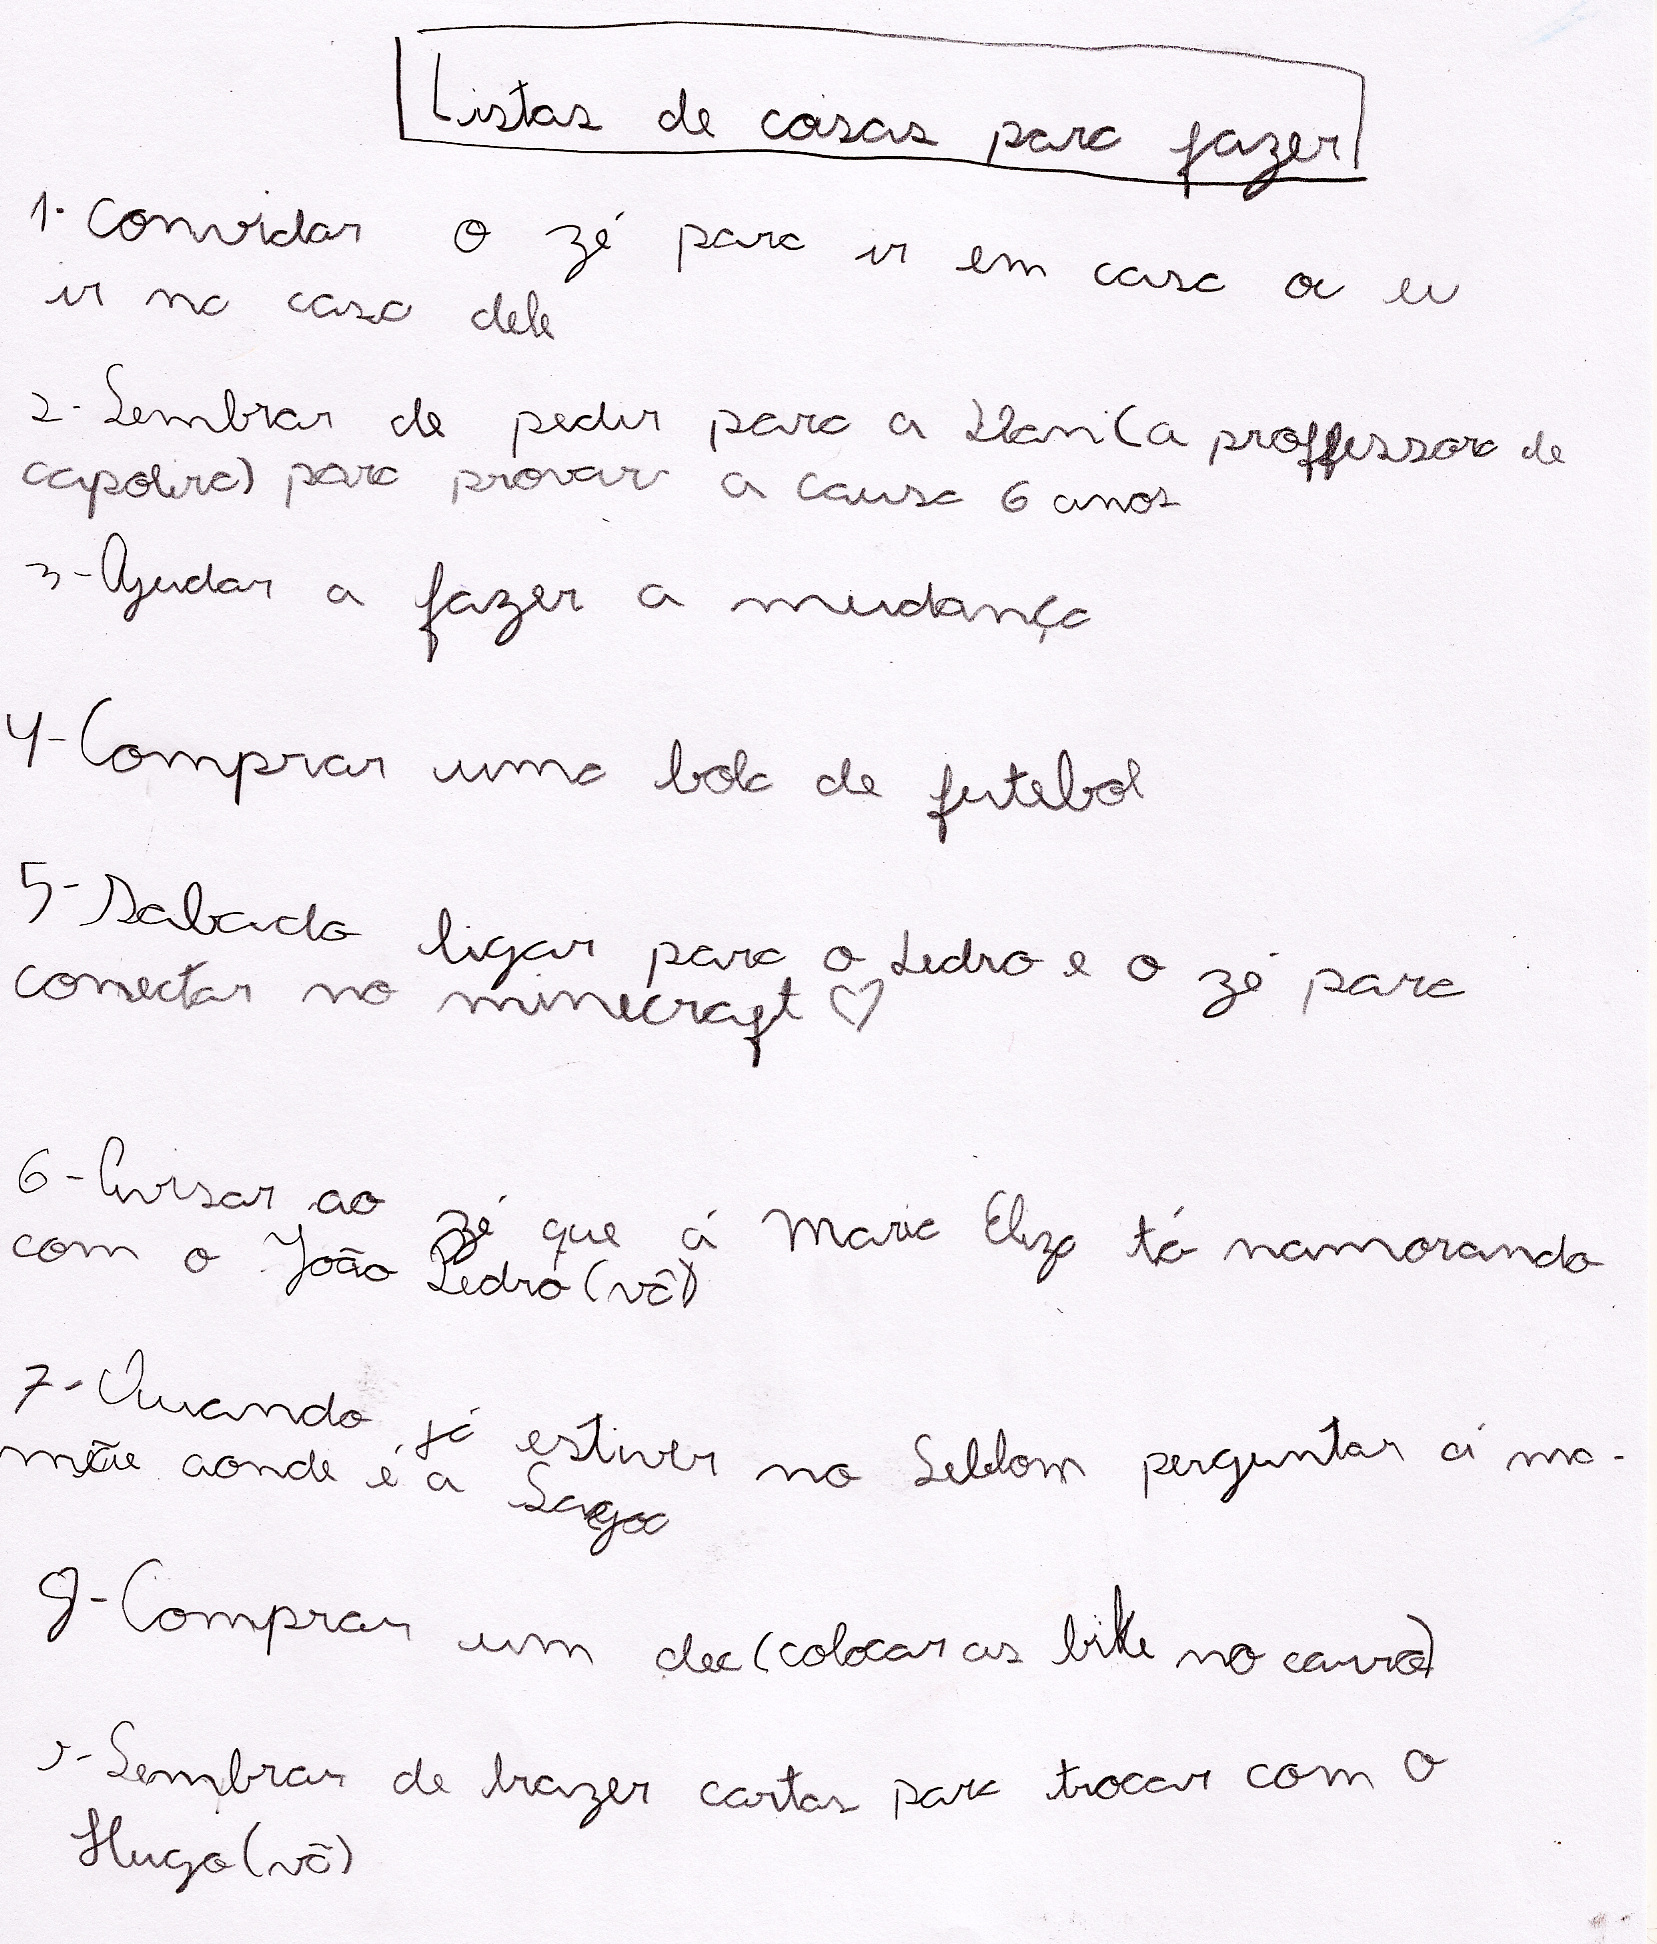 Listas de coisas para fazer
1- Convidar o zé para ir em casa ou eu
ir na casa dele
2- Lembrar de pedir para a (a proffessora de
capoeira) para provar a causa 6 anos
3- Ajudar a fazer a mudança
4- Comprar uma bola de futebol
5- Sabado ligar para o Pedro e o zé para
conectar no minecraft ♡
6- Avisar ao zé que á Maria Eliza tá namorando
com o João Pedro (vê)
7- Quando já estiver no Leblom perguntar á ma-
mãe aonde é a
8- Comprar um (colocar as bike no carro)
9- Lembrar de trazer cartas para trocar com o
Hugo